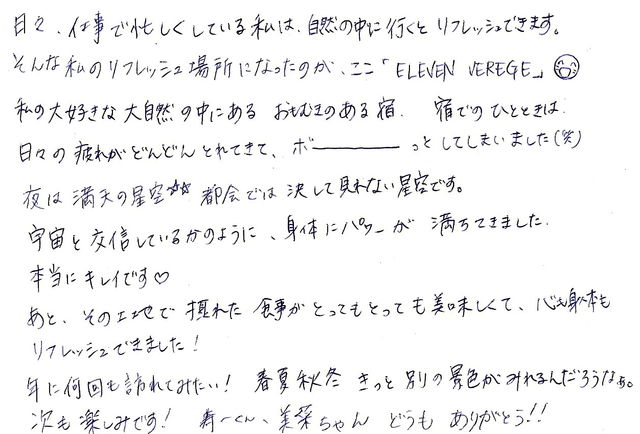 日々、仕事で忙しくしている私は、自然の中に行くとリフレッシュできます。
そんな私のリフレッシュ場所になったのが、ここ「ELEVEN VEREGE」
私の大好きな大自然の中にある おもむきのある宿. 宿でのひとときは
日々の疲れがどんどんとれてきて、ボーーーーっとしてしまいました(笑)
夜は満天の星空☆☆ 都会では決して見れない星空です。
宇宙と交信しているかのように、身体にパワーが 満ちてきました.
本当にキレイです♡
あと、その土地で獲れた食事がとってもとっても美味しくて、心も身体も
リフレッシュできました!
年に何回も訪れてみたい! 春夏秋冬 きっと別の景色がみれるんだろうなぁ。
次も楽しみです! 寿一くん、美菜ちゃん どうも ありがとう!!